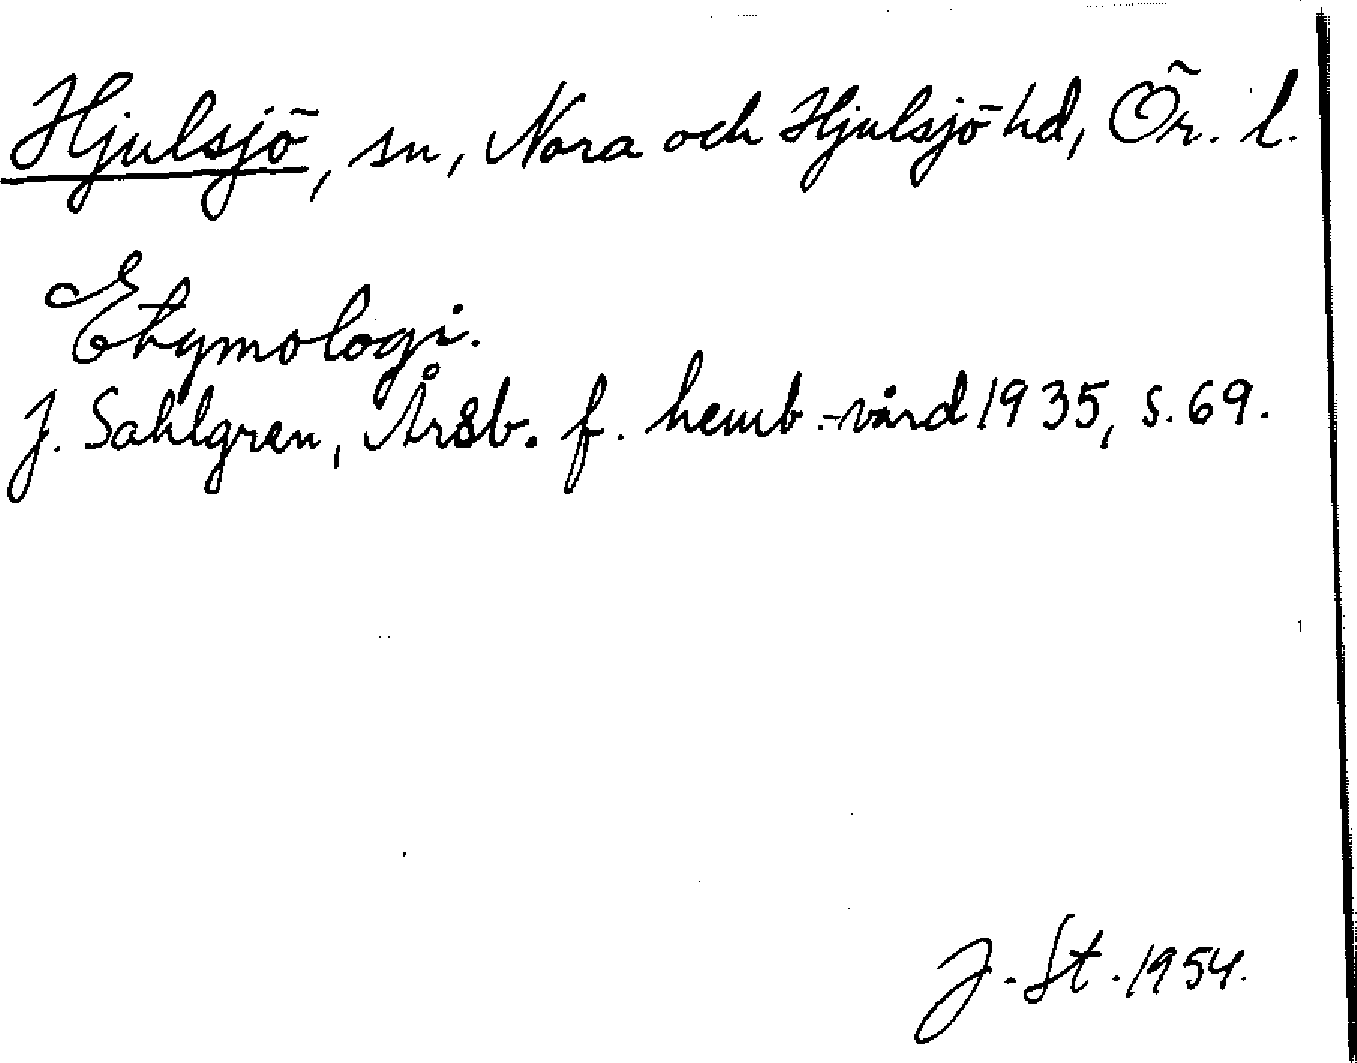 Hjulsjö, sn, Nora och Hjulsjö hd, Ör. l.
Etymologi.
J. Sahlgren, Årsb. f. hemb.-vård 1935, s. 69.
J. St. 1954.